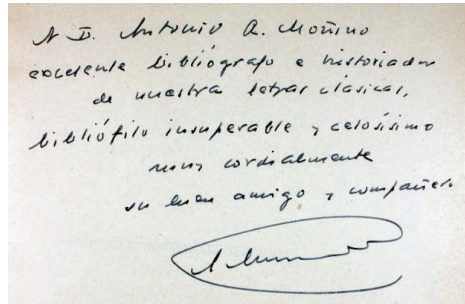 A D. Antonio R. Moñino
excelente bibliógrafo e historiador
de nuestras letras clásicas,
bibliófilo insuperable y celosísimo
muy cordialmente
su buen amigo y compañero